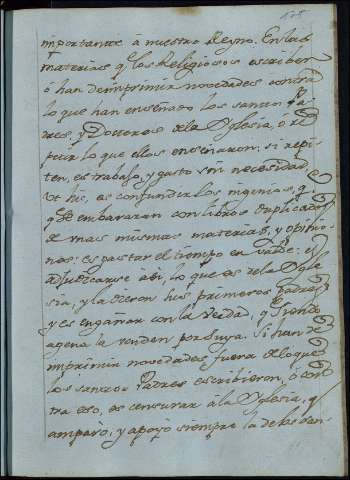 importante á nuestro Reyno. En las
materias q los Religiosos escriben
ó han de imprimir novedades contra
lo que han enseñado los santos Pa
dres, y Dottores de la Yglesia, ó re
petir lo que ellos enseñaron, si repi
ten, es trabajo, y gasto sin necesidad,
es confundir los ingenios, q
se embararán con libros duplicados
de unas mismas materias, y opinio
nes: es gastar el tiempo en valde: es
adjudicarse á si, lo que es de la Ygle
sia, y la dieron sus primeros Padres,
y es engañar con la venda, q siendo
agena la venden por suya. Si han de
imprimir novedades fuera de lo que
los santos Padres escribieron, ó con
tra eso, es censurar á la Yglesia, q
amparó, y apoyó siempre la de los san-